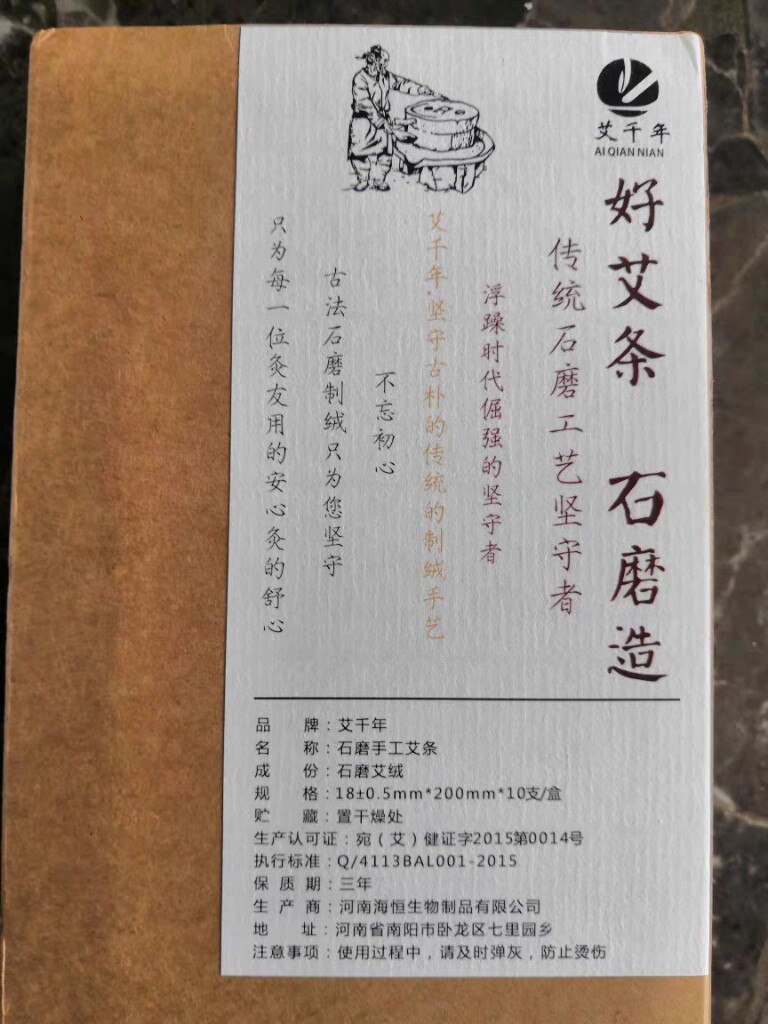 艾千年
AI QIAN NIAN
好艾条 石磨造
传统石磨工艺坚守者
浮躁时代倔强的坚守者
艾千年·坚守古朴的传统的制绒手艺
不忘初心
古法石磨制绒只为您坚守
只为每一位灸友用的安心灸的舒心
品 牌：艾千年
名 称：石磨手工艾条
成 份：石磨艾绒
规 格：18±0.5mm*200mm*10支/盒
贮 藏：置干燥处
生产认可证：宛（艾）健证字2015第0014号
执行标准：Q/4113BAL001-2015
保 质 期：三年
生 产 商：河南海恒生物制品有限公司
地 址：河南省南阳市卧龙区七里园乡
注意事项：使用过程中，请及时弹灰，防止烫伤